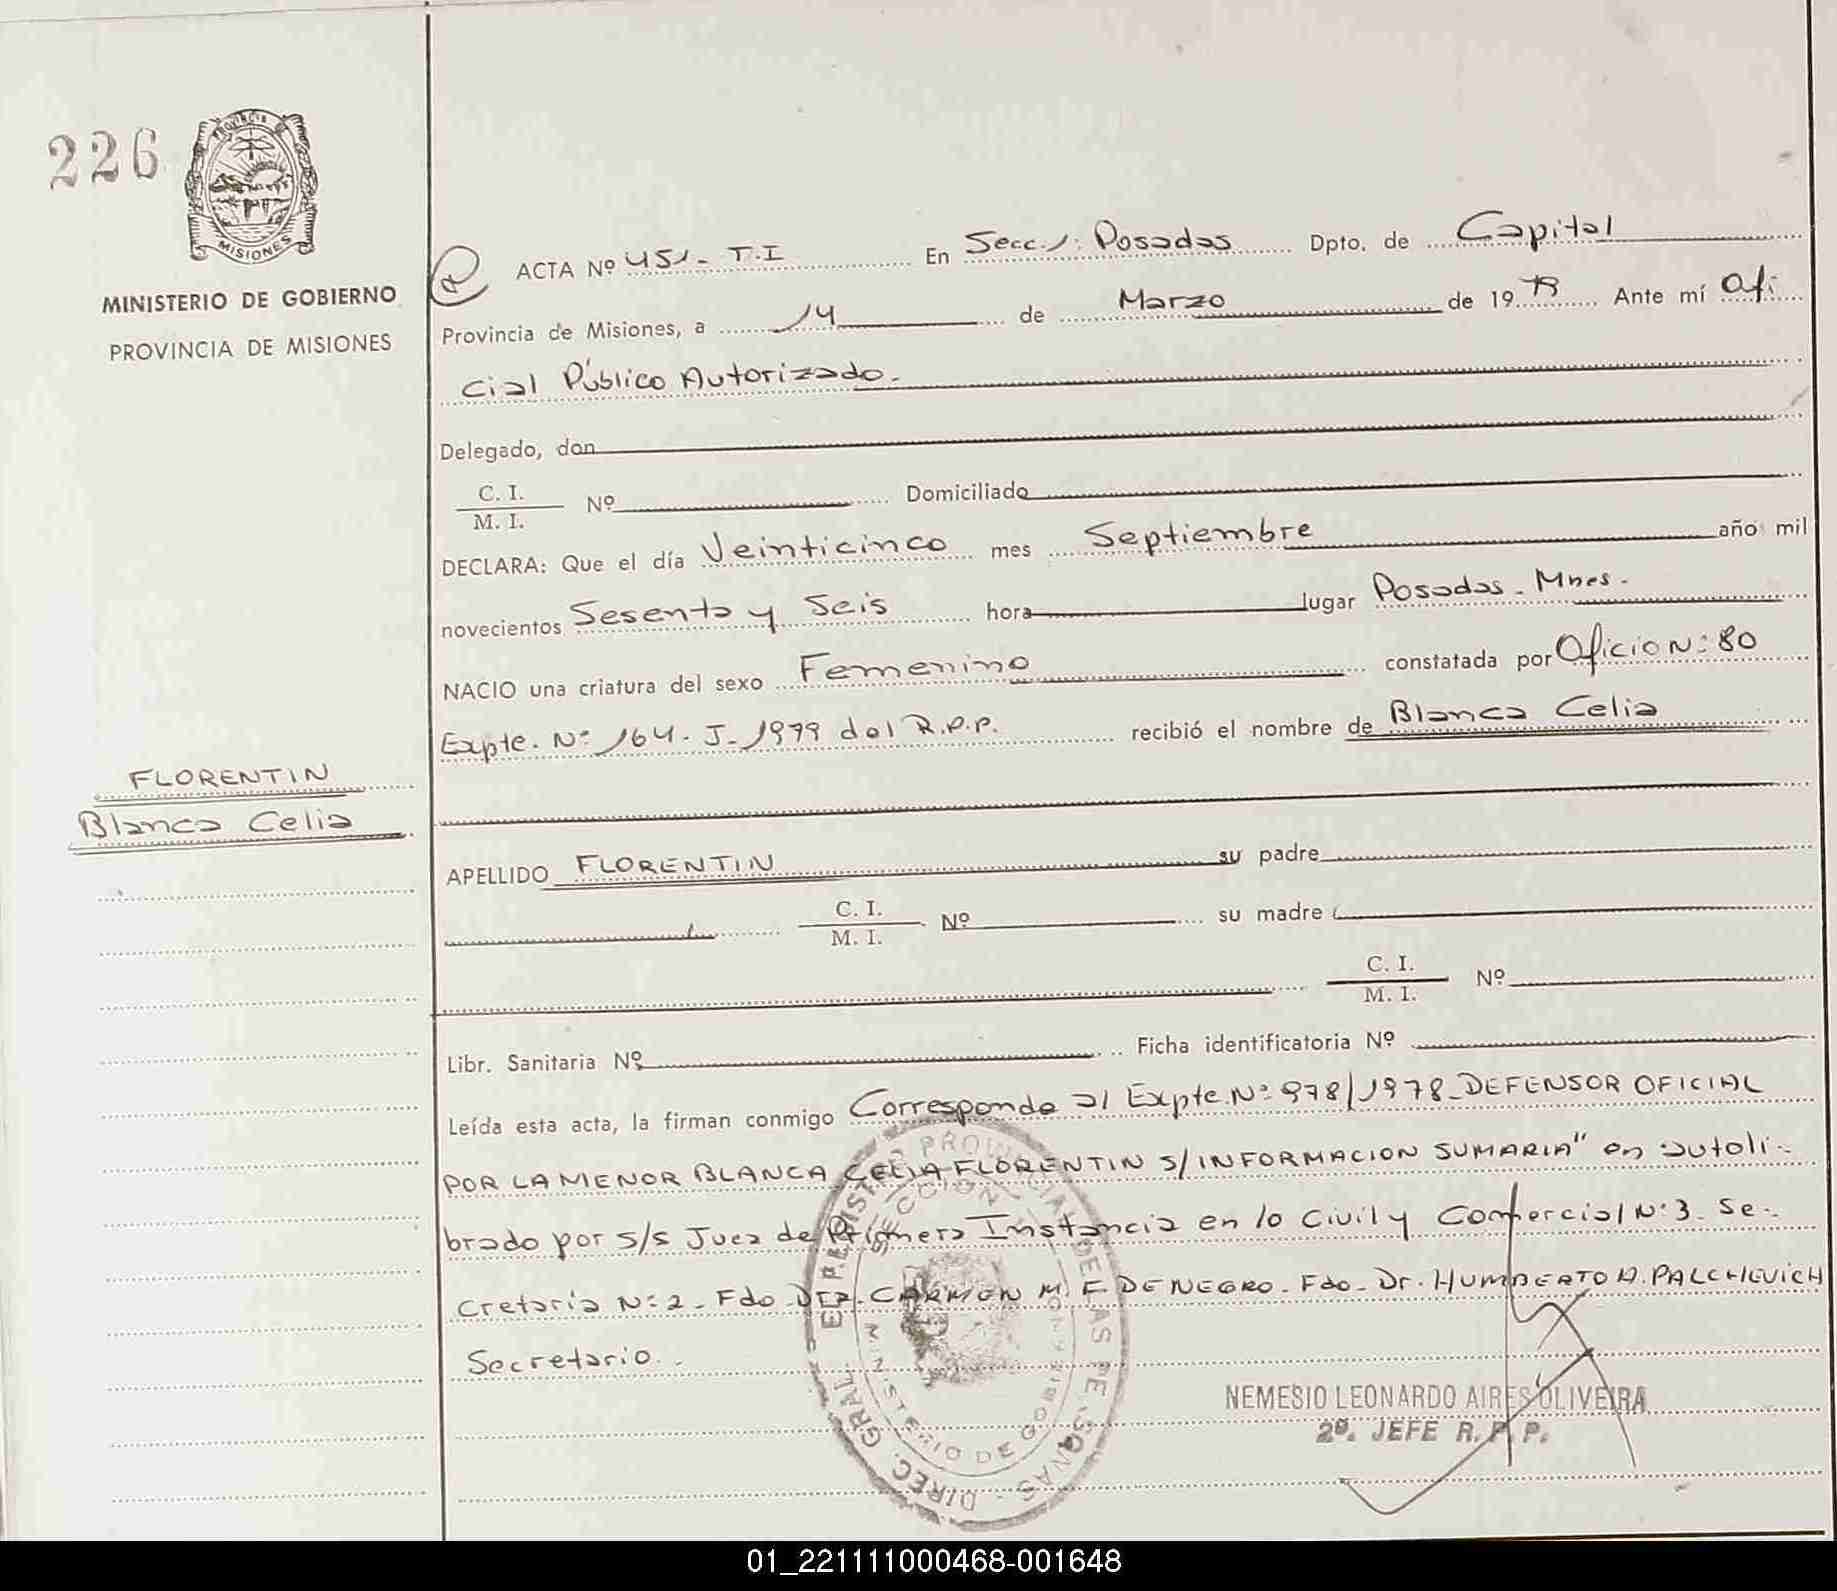 226
PROVINCIA DE
MISIONES
MINISTERIO DE GOBIERNO
PROVINCIA DE MISIONES
FLORENTIN
Blanca Celia
ACTA Nº 451- T.I En Secc. 1: Posadas Dpto. de Capital
Provincia de Misiones, a 14 de Marzo de 1979 Ante mí Ofi
cial Público Autorizado.
Delegado, don
C. I.
M. I. Nº Domiciliado
DECLARA: Que el día Veinticinco mes Septiembre año mil
novecientos Sesenta y Seis hora lugar Posadas - Mnes.
NACIO una criatura del sexo Femenino constatada por Oficio N: 80
Expte. Nº 164 - J - 1979 del R.P.P. recibió el nombre de Blanca Celia
APELLIDO FLORENTIN su padre
C. I.
M. I. Nº su madre
C. I.
M. I. Nº
Libr. Sanitaria Nº Ficha identificatoria Nº
Leída esta acta, la firman conmigo Corresponde al Expte Nº 978/1978 - DEFENSOR OFICIAL
POR LA MENOR BLANCA CELIA FLORENTIN S/INFORMACION SUMARIA" en autoli-
brado por s/s Juez de Primera Instancia en lo Civil y Comercial N: 3. Se-
cretaria N: 2 - Fdo - Dra. CARMEN M. F. DE NEGRO - Fdo - Dr. HUMBERTO A. PALCHEVICH
Secretario.
DIREC. GRAL. REGISTRO PROVINCIAL DE LAS PERSONAS
MINISTERIO DE GOBIERNO
NEMESIO LEONARDO AIRES OLIVEIRA
2º. JEFE R. P. P.
01_221111000468-001648